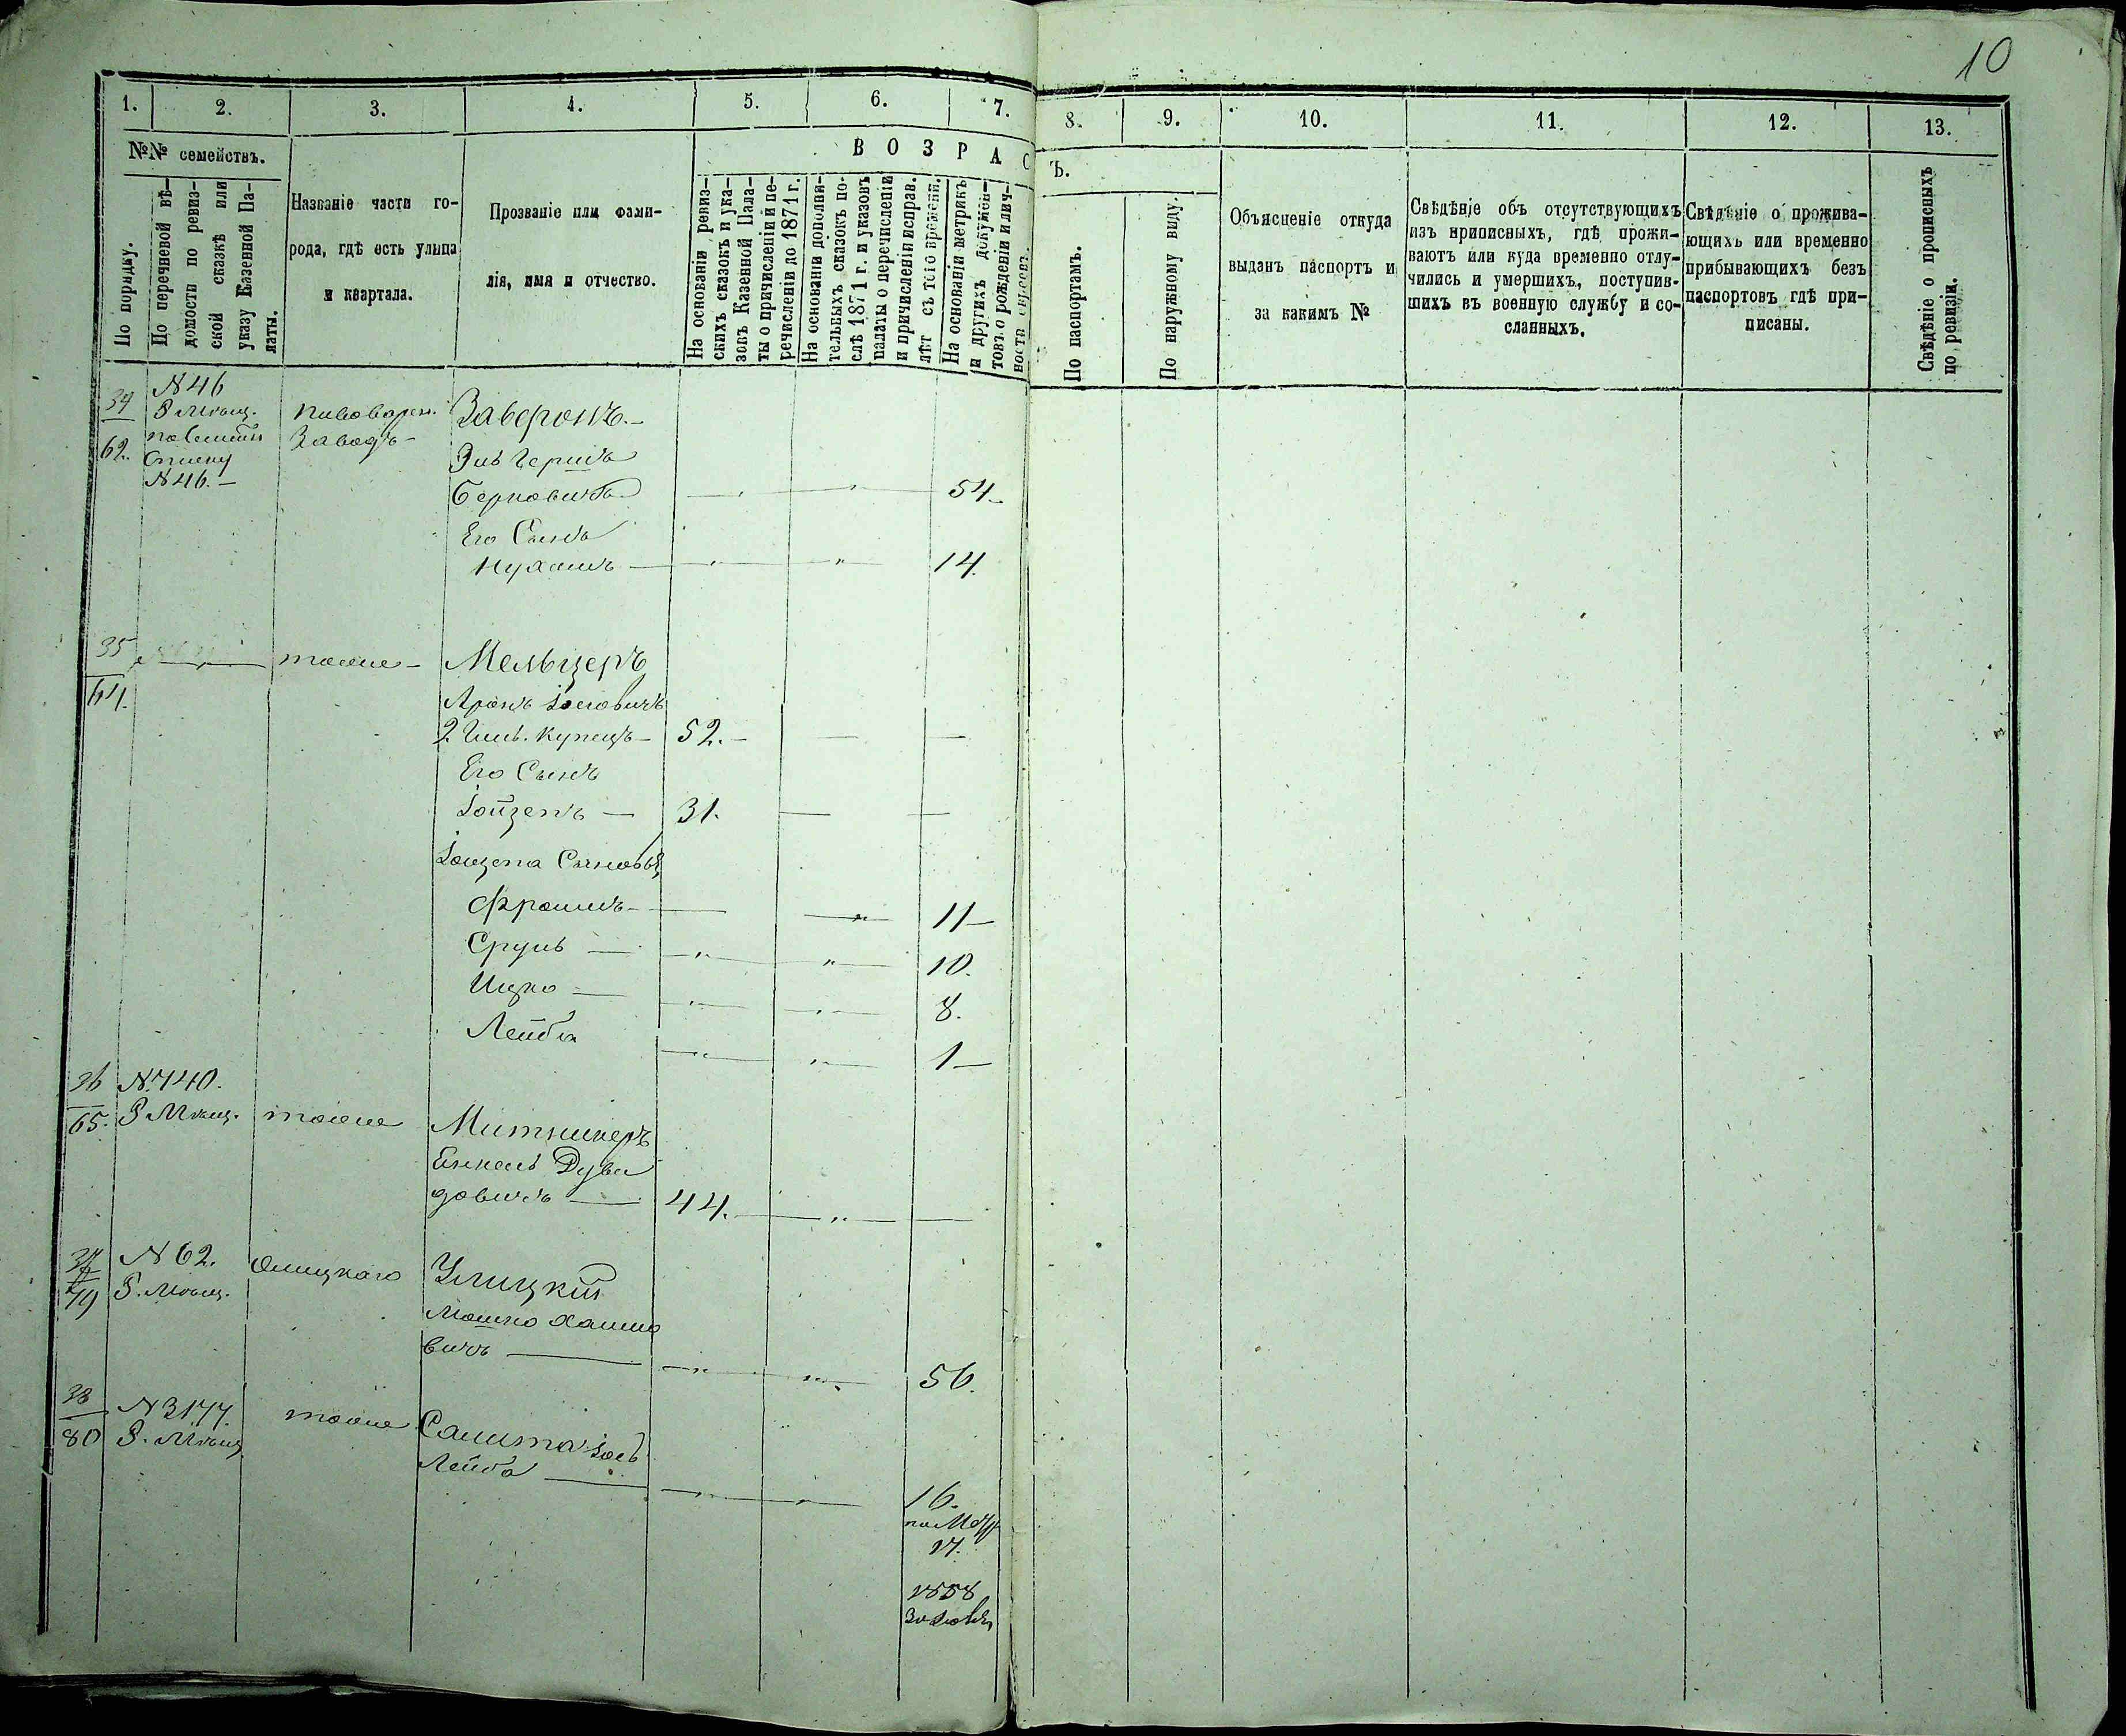 10
1. 2. 3. 4. 5. 6. 7. 8. 9. 10. 11. 12. 13.
№№ семействъ.
По порядку.
По перечневой вѣ-
домости по ревиз-
ской сказкѣ или
указу Казенной Па-
латы.
Названіе части го-
рода, гдѣ есть улица
и квартала.
Прозваніе или фами-
лія, имя и отчество.
ВОЗРАС
Ъ.
На основаніи ревиз-
скихъ сказокъ и ука-
зовъ Казенной Пала-
ты о причисленіи и пе-
речисленіи до 1871 г.
На основаніи дополни-
тельныхъ сказокъ по-
слѣ 1871 г. и указовъ
палаты о перечисленіи
и причисленіи исправ.
лѣт съ того времени.
На основаніи метрикъ
и другихъ докумен-
товъ о рожденіи и лич-
ности евреевъ.
По паспортамъ.
По наружному виду.
Объясненіе откуда
выданъ паспортъ и
за какимъ №
Свѣдѣніе объ отсутствующихъ
изъ приписныхъ, гдѣ прожи-
ваютъ или куда временно отлу-
чились и умершихъ, поступив-
шихъ въ военную службу и со-
сланныхъ.
Свѣдѣніе о прожива-
ющихъ или временно
прибывающихъ безъ
паспортовъ гдѣ при-
писаны.
Свѣдѣніе о прописныхъ
по ревизіи.
34
62.
№ 46
Р Мѣщ.
списку
№ 46. —
Пивоварен.
Заводъ —
Заверонъ. —
Эль Гершъ
Берковичъ — 54.
Его Сынъ
Нухимъ — 14.
35
64.
тоже — Мельцеръ
Аронъ Іосіовичъ
2 Гил. Купецъ — 52. —
Его Сынъ
Іойзепъ — 31.
Іойзепа Сыновья
Фроимъ — 11 —
Сруль — 10.
Ицко — 8.
Лейба 1 —
36
65.
№ 740.
Р Мѣщ. тоже Митникеръ
Енкель Дуви
довичъ — 44.
37
79
№ 62.
Р. Мѣщ.
Олицкаго Улицкій
Мошко Хаимо
вичъ — 56.
38
80
№ 3177.
Р. Мѣщ.
тоже Салита Іось
Лейба — 16.
17.
1858